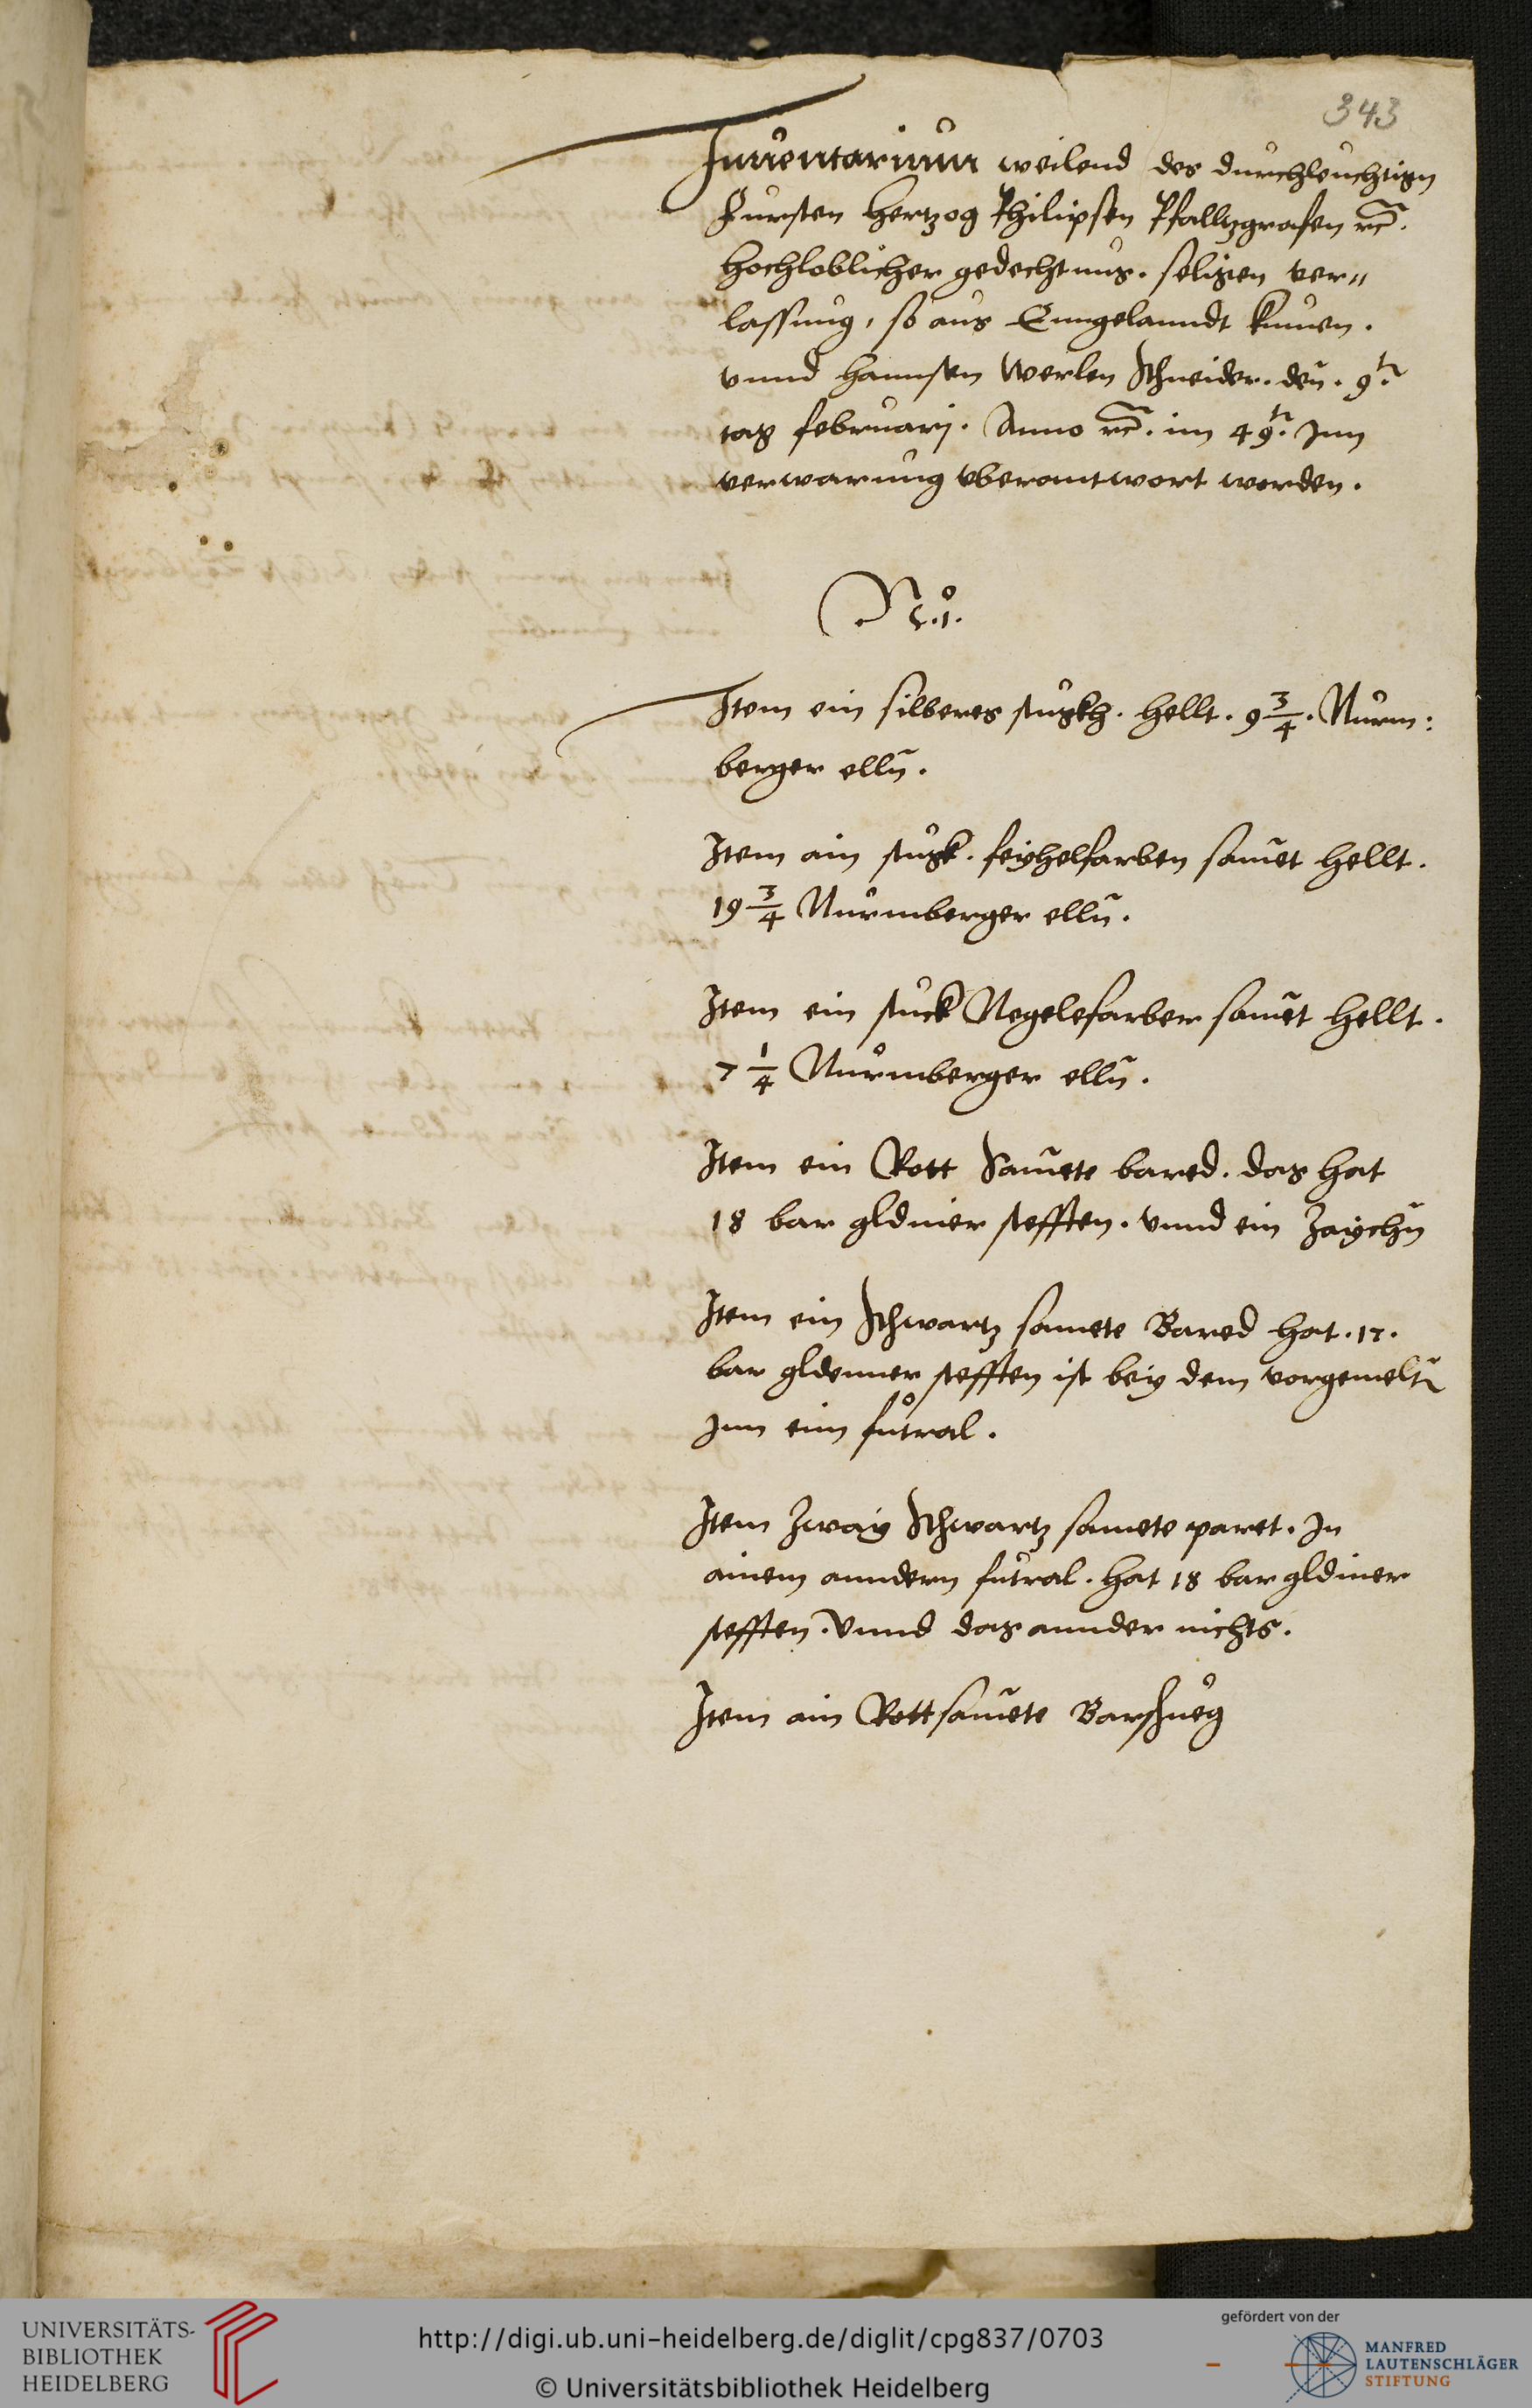 343
Innventarium weilend des durchleuchtign
Fursten Hertzog Philipsen Pfalltzgrafen rc̃.
hochloblicher gedechtnus. seligen ver„
lassung, so aus Enngelanndt kumen.
vnnd Hannsen Werlen Schneider. deñ. 9tñ.
tag februarj. Anno rc̃. im 49tñ. Jnn
verwarung vberantwort worden.
No. 1.
Item ein silberes stuckh. hellt. 9 3/4. Nurm:
berger elln̄.
Item ain stuck. feyhelfarben samet hellt.
19 3/4 Nurmberger elln̄.
Item ein stuck Negelefarber samet hellt.
7 1/4 Nurmberger elln̄.
Item ein Rott Samete bared. das hat
18 bar gldnier stefften. vnnd ein Zaychn̄
Item ein Schwartz samete Bared hat. 17.
bar gldenner stefften ist bey dem vorgemeltn̄
Jnn eim futral.
Item Zway Schwartz samete paret. In
ainem anndern futral. hat 18 bar gldiner
stefften. Vnnd das annder nichts.
Item ain Rott samete
UNIVERSITÄTS-
BIBLIOTHEK
HEIDELBERG
http://digi.ub.uni-heidelberg.de/diglit/cpg837/0703
© Universitätsbibliothek Heidelberg
gefördert von der
MANFRED
LAUTENSCHLÄGER
STIFTUNG